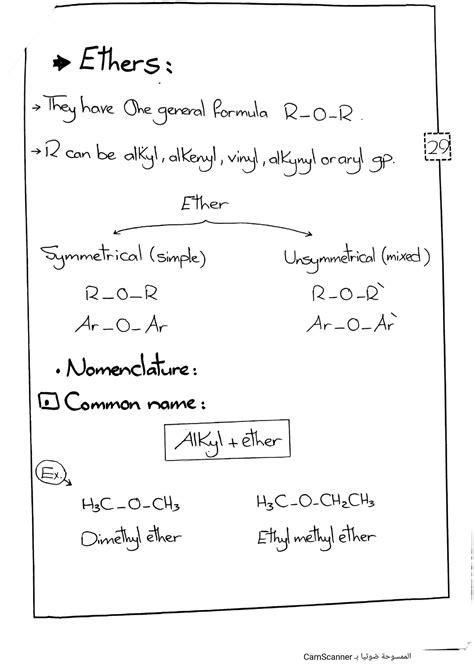 → Ethers:
→ They have One general formula R_O_R.
→ R can be alkyl, alkenyl, vinyl, alkynyl or aryl gp.
29
Ether
Symmetrical (simple) Unsymmetrical (mixed)
R_O_R R_O_R`
Ar_O_Ar Ar_O_Ar`
• Nomenclature:
Common name:
Alkyl + ether
Ex.
H₃C_O_CH₃ H₃C_O_CH₂CH₃
Dimethyl ether Ethyl methyl ether
الممسوحة ضوئيا بـ CamScanner